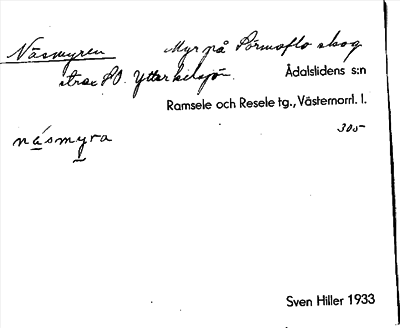 Näsmyren Myr på Sörmoflo skog
strax SO. Ytterkilsjön.
Ådalslidens s:n
Ramsele och Resele tg., Västernorrl. l.
305-
näsmyra
Sven Hiller 1933